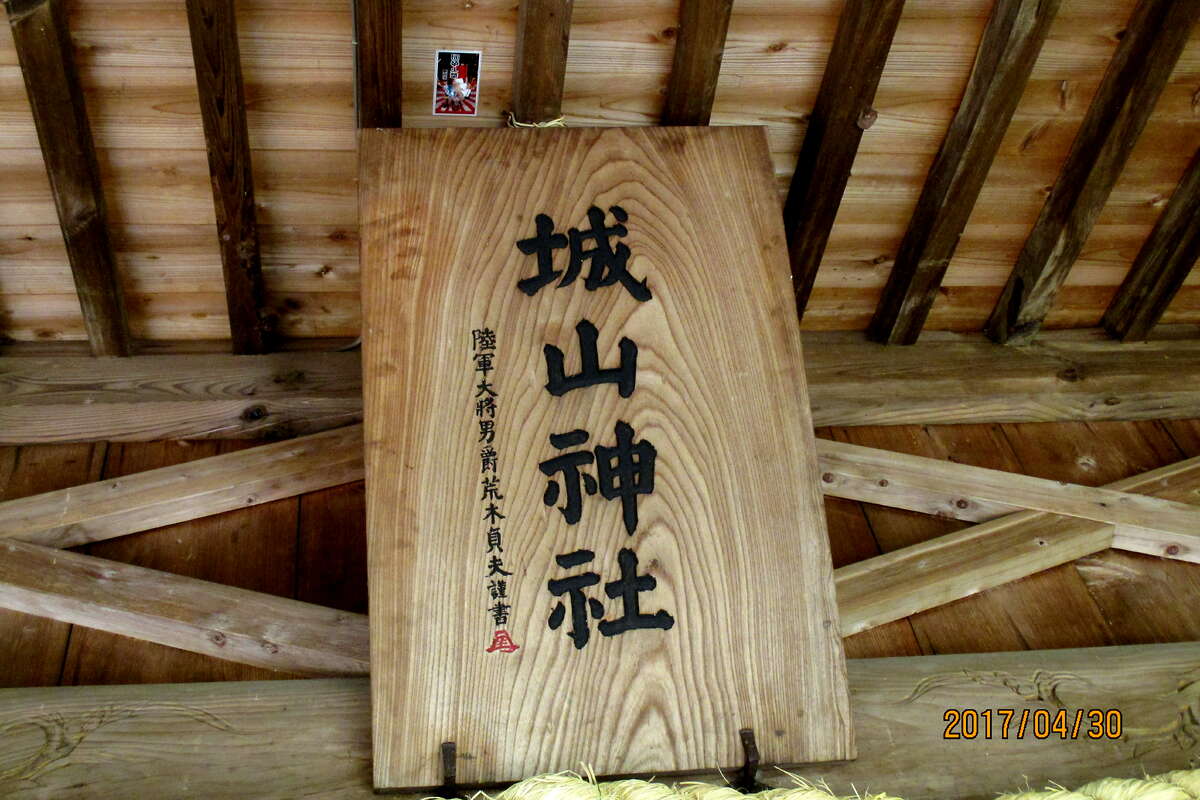 城山神社
陸軍大將男爵荒木貞夫謹書
2017/04/30